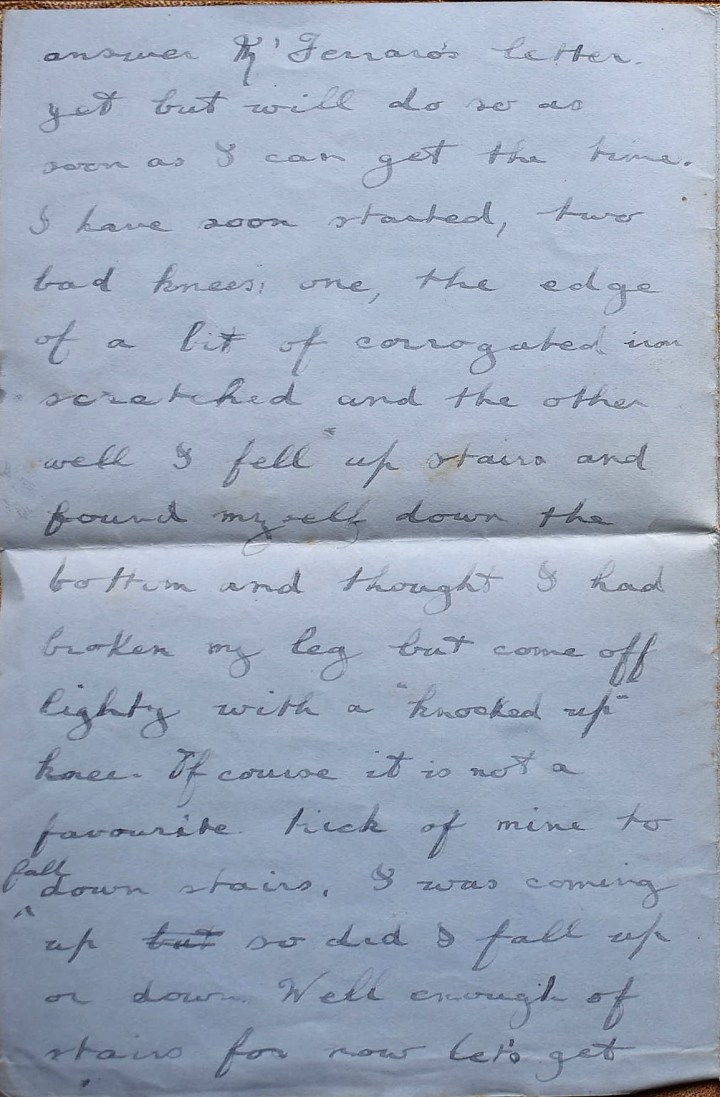 answer Mr Ferraro's letter.
yet but will do so as
soon as I can get the time.
I have soon started, two
bad knees; one, the edge
of a bit of corrogated iron
scratched and the other
well I fell "up stairs and
found myself down the
bottem and thought I had
broken my leg but come off
lighty with a "knocked up"
knee. Of course it is not a
favourite tick of mine to
fall
down stairs. I was coming
up but so did I fall up
or down. Well enough of
stairs for now let's get